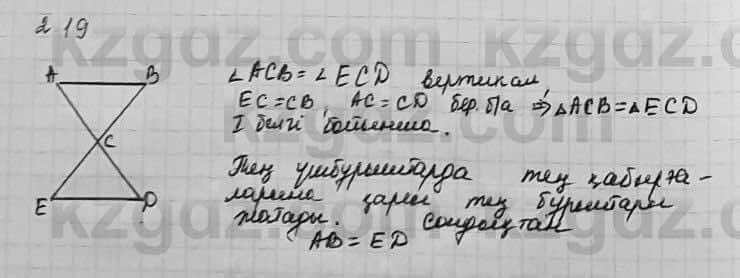 2 19
A B
C
E D
∠ACB = ∠ECD вертикал,
EC=CB, AC=CD бер. б/а ⇒ △ACB=△ECD
I белгі бойынша.
Тең үшбұрыштарда тең қабырға-
ларына қарсы тең бұрыштары
жатады. Сондықтан
AB = ED
kzgdz.com